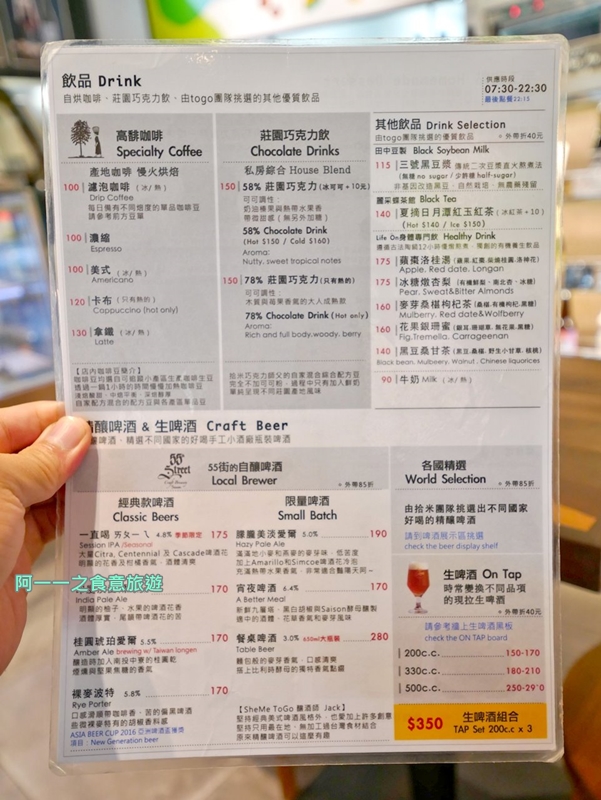 飲品 Drink
自烘咖啡、莊園巧克力飲、由togo團隊挑選的其他優質飲品
供應時段
07:30-22:30
最後點餐22:15
高騑咖啡
Specialty Coffee
產地咖啡 慢火烘焙
100 濾泡咖啡 (冰/熱)
Drip Coffee
每日備有不同焙度的單品咖啡豆
請參考前方豆單
100 濃縮
Espresso
100 美式 (冰/熱)
Americano
120 卡布 (只有熱的)
Cappuccino (hot only)
130 拿鐵 (冰/熱)
Latte
【店內咖啡豆簡介】
自家配方混合的配方豆與各產區單品豆
莊園巧克力飲
Chocolate Drinks
私房綜合 House Blend
150 58% 莊園巧克力 (冰可可+10元)
可可調性:
奶油榛果與熱帶水果香
帶微甜感 (無另外加糖)
58% Chocolate Drink
(Hot $150 / Cold $160)
Aroma:
Nutty, sweet tropical notes
150 78% 莊園巧克力 (只有熱的)
可可調性:
木質與莓果香氣的大人成熟飲
78% Chocolate Drink (Hot only)
Aroma:
Rich and full body.woody. berry
拾米巧克力師父的自家綜合配方豆
完全不加可可粉,過程中只有加入鮮奶
單純呈現不同莊園產地風味
其他飲品 Drink Selection
由togo團隊挑選的優質飲品 ※外帶折40元
田中豆製 Black Soybean Milk
115 三號黑豆漿 傳統二次豆漿直火煎煮法
(無糖 no sugar / 少許糖 half-sugar)
非基因改造黑豆、自然栽培、無農藥殘留
麗采蝶茶館 Black Tea
140 夏摘日月潭紅玉紅茶 (冰紅茶+10)
(Hot $140 / Ice $150)
Life On身體專門飲 Healthy Drink
175 蘋棗洛桂湯 (蘋果.紅棗.柴燒桂圓.洛神花)
Apple. Red date. Longan
175 冰糖燉杏梨
Pear. Sweat&Bitter Almonds
160 麥芽桑椹枸杞茶 (桑椹.有機枸杞.黑糖)
Mulberry. Red date&Wolfberry
160 花果銀珊蜜
Fig.Tremella. Carrageenan
140 黑豆桑甘茶 (黑豆.桑椹.野生小甘草.核桃)
Black bean, Mulbeery, Walnut . Chinese liquorices
90 牛奶 Milk (冰/熱)
精釀啤酒 & 生啤酒 Craft Beer
精釀啤酒、精選不同國家的好喝手工小酒廠瓶裝啤酒
55th Street
55街的自釀啤酒
Local Brewer
※外帶85折
經典款啤酒
Classic Beers
一直喝 ㄞㄆㄧㄟ 4.8% 季節限定 175
Session IPA /Seasonal
大量Citra, Centennial 及 Cascade啤酒花
明顯的花香及柑橘香氣、酒體清爽
170
India Pale Ale
明顯的柚子、水果的啤酒花香
酒體厚實、尾韻帶啤酒花的苦
桂圓琥珀愛爾 5.5% 170
Amber Ale brewing w/ Taiwan longen
釀造時加入南投中寮的桂圓乾
煙燻與堅果焦糖的香氣
裸麥波特 5.8% 170
Rye Porter
口感滑順帶咖啡香、苦的偏黑啤酒
些微裸麥特有的胡椒香料感
ASIA BEER CUP 2016 亞洲啤酒盃優獎
項目:New Generation beer
限量啤酒
Small Batch
朦朧美淡愛爾 5.0% 190
Hazy Pale Ale
滿滿地小麥和燕麥的麥芽味,低苦度
加上Amarillo和Simcoe酒花的冷泡
充滿熱帶水果香氣,非常適合豔陽天阿~
宵夜啤酒 6.4% 170
A Better Meal
新鮮九層塔、黑白胡椒與Saison酵母釀製
適中的酒體、花草香氣與水果香
餐桌啤酒 3.0% 650ml大瓶裝 280
Table Beer
麵包般的麥芽香氣,口感清爽
搭上比利時酵母的獨特香氣點綴
【SheMe ToGo 釀酒師 Jack】
堅持經典美式啤酒風格外,也愛加上許多創意
堅持只用最在地、無加工過台灣食材結合
原來精釀啤酒可以這麼有趣
各國精選
World Selection
※外帶85折
由拾米團隊挑選出不同國家
好喝的精釀啤酒
請到啤酒展示區挑選
check the beer display shelf
生啤酒 On Tap
時常變換不同品項
的現拉生啤酒
※外帶折40元
請參考牆上生啤酒黑板
check the ON TAP board
200c.c. 150-170
330c.c. 180-210
500c.c. 250-290
$350 生啤酒組合
TAP Set 200c.c x 3
阿一一之食意旅遊